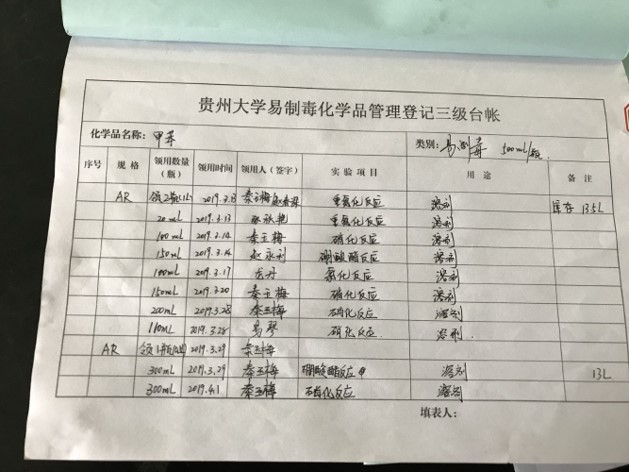 贵州大学易制毒化学品管理登记三级台帐
化学品名称：甲苯 类别：易制毒 500ml/瓶
序号 规格 领用数量（瓶） 领用时间 领用人（签字） 实验项目 用途 备注
AR 领2瓶 2019.3.13 秦玉梅 重氮化反应 溶剂 库存 13.5L
20mL 2019.3.13 重氮化反应 溶剂
100mL 2019.3.14 秦玉梅 硝化反应 溶剂
150mL 2019.3.14 赵永利 硼酸酯反应 溶剂
100mL 2019.3.17 龙丹 氯化反应 溶剂
150mL 2019.3.20 秦玉梅 硝化反应 溶剂
200mL 2019.3.28 秦玉梅 硝化反应 溶剂
110mL 2019.3.28 易琴 硝化反应 溶剂
AR 领1瓶 2019.3.29 秦玉梅
300mL 2019.3.29 秦玉梅 硼酸酯反应 溶剂 13L
300mL 2019.4.1 秦玉梅 硝化反应 溶剂
填表人：